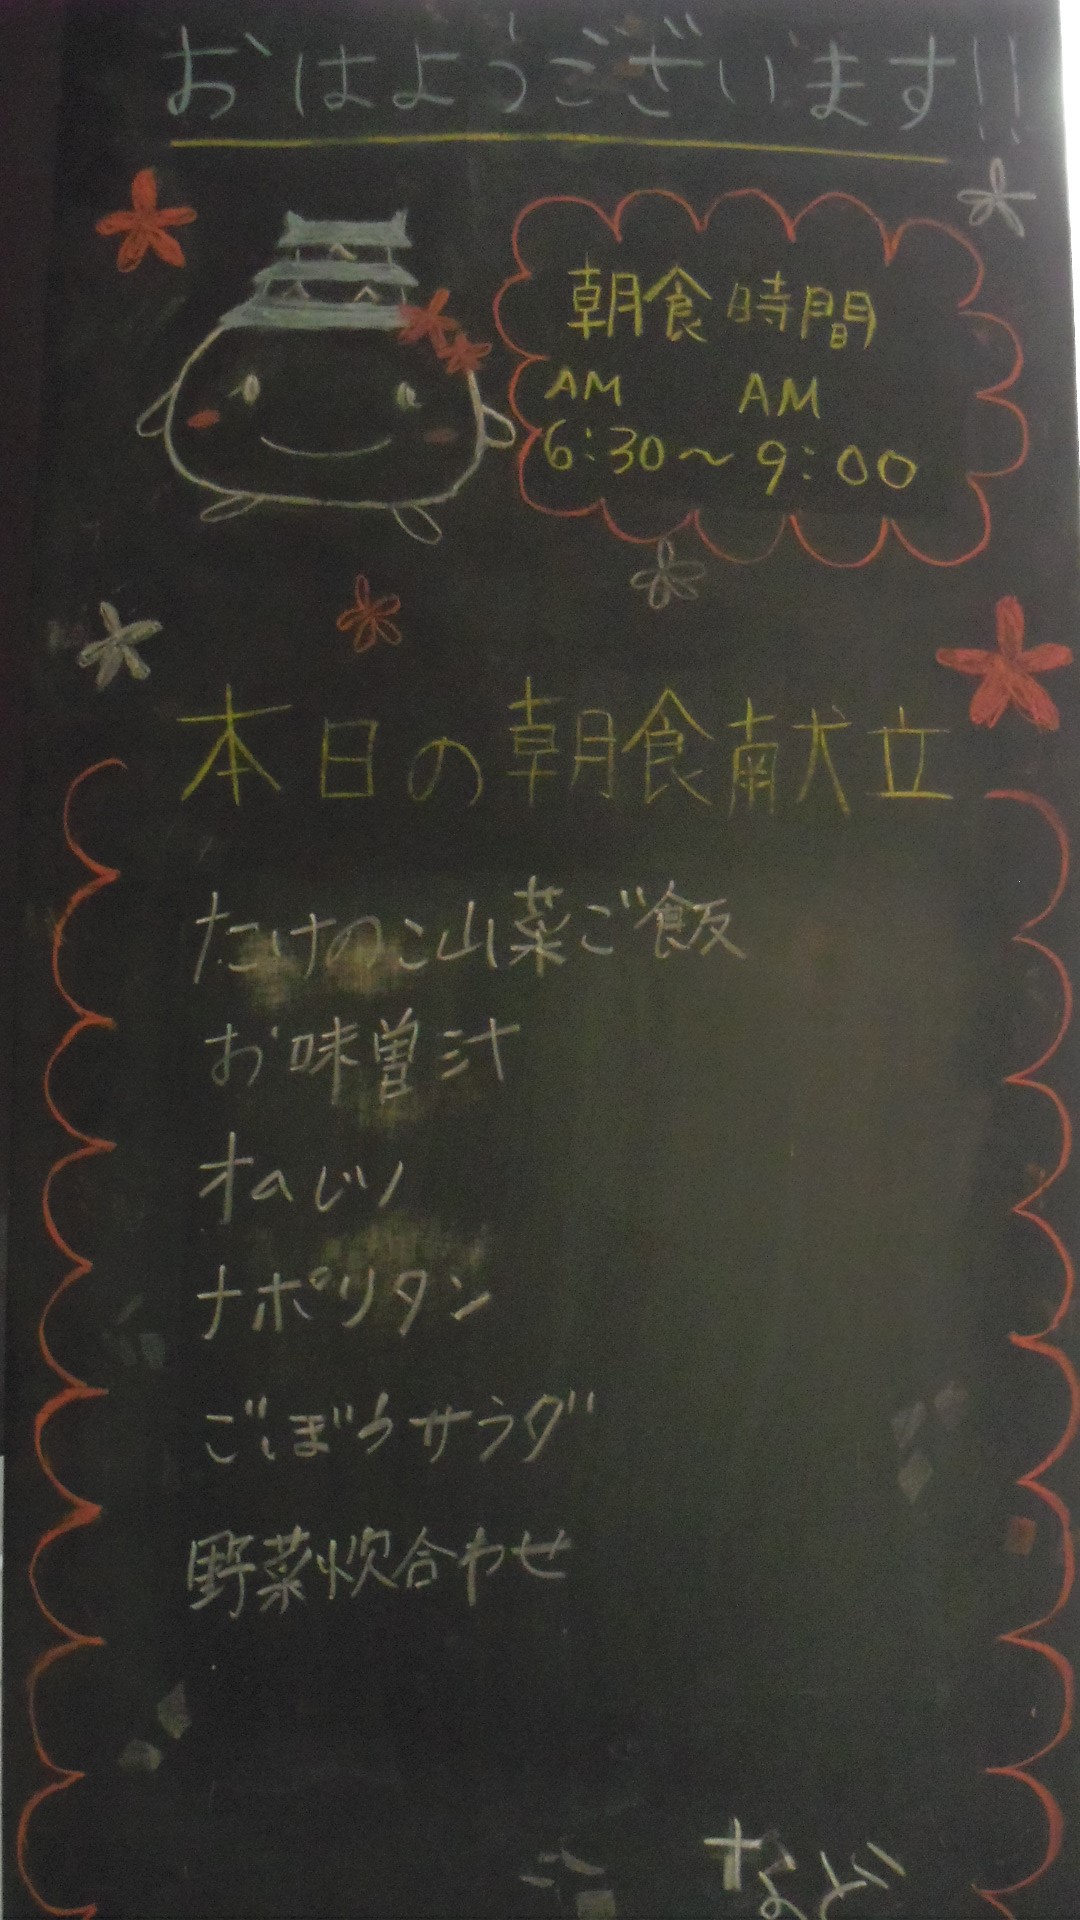 おはようございます!!
朝食時間
AM AM
6:30～9:00
本日の朝食献立
たけのこ山菜ご飯
お味曽汁
オムレツ
ナポリタン
ごぼうサラダ
野菜炊合わせ
など